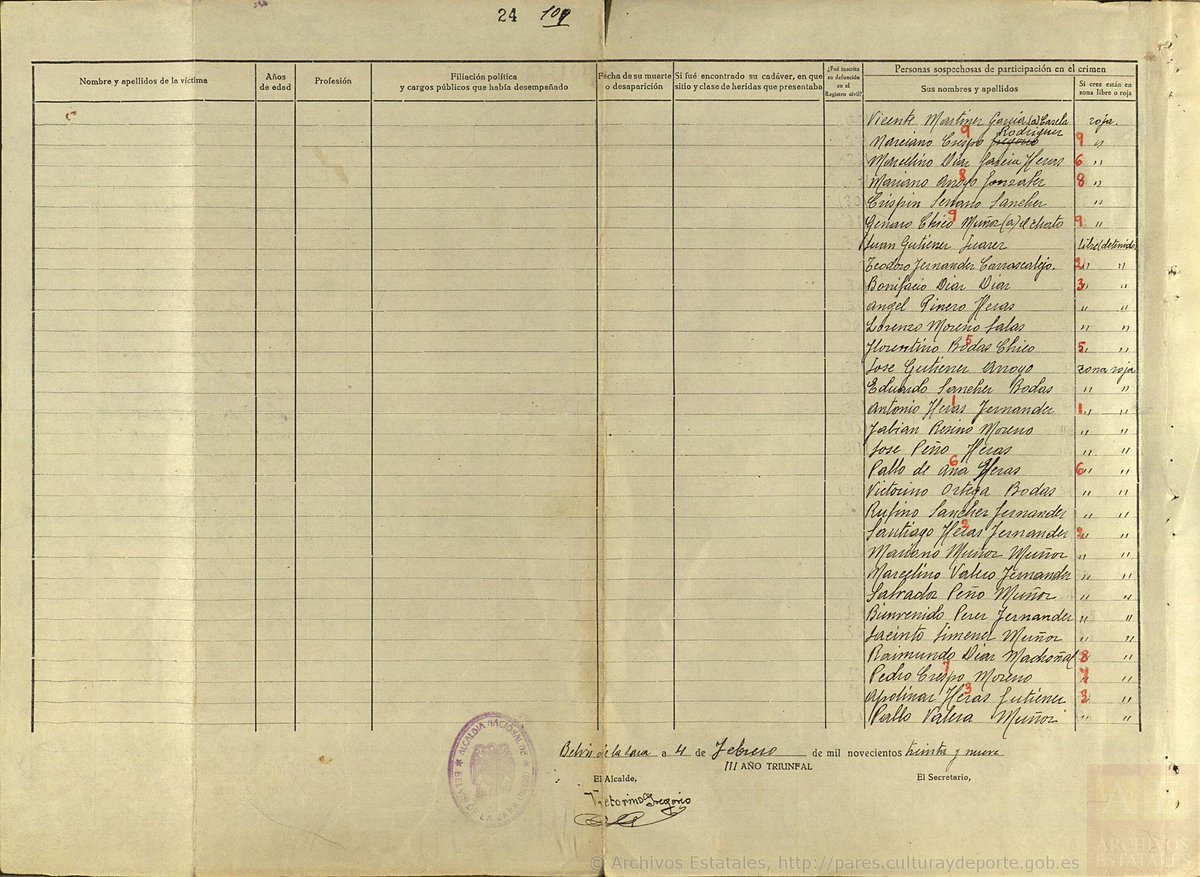 24 109
Nombre y apellidos de la víctima
Años de edad
Profesión
Filiación política
y cargos públicos que había desempeñado
Fecha de su muerte
o desaparición
Si fué encontrado su cadáver, en que
sitio y clase de heridas que presentaba
¿Fué inscrita
su defunción
en el
Registro civil?
Personas sospechosas de participación en el crimen
Sus nombres y apellidos
Si cree están en
zona libre o roja
Vicente Martiner Garcia (a) roja.
Rodriguer
Marciano Crespo 9 9 "
Marcelino Diar Garcia Heras 6 "
Mariano Arroyo Gonzaler 8 8 "
Crispin Serrano Sancher "
Genaro Chico Muñoz (a) el chato 9 9 "
Juan Gutiener Juarer libre (detenido)
Teodoro Fernander Carrascalejo. 2 " "
Bonifacio Diar Diar 3 " "
Angel Pinero Heras " "
Lorenzo Moreno Salas " "
Florentino Bodas Chico 5 5 " "
Jose Gutiener Arroyo zona roja
Eduardo Sancher Bodas " "
Antonio Heras Fernander 1 1 " "
Fabian Resino Moreno " "
Jose Peño Heras " "
Pablo de Ana Heras 6 6 " "
Victorino Ortega Bodas " "
Rufino Sancher Fernander " "
Santiago Heras Fernander 2 2 " "
Mariano Muñor Muñor " "
Marcelino Valero Fernander " "
Salvador Peño Muñor " "
Bienvenido Perer Fernander " "
Jacinto Jimener Muñor " "
Raimundo Diar Madroñal 8 "
Pedro Crespo Moreno 7 7 "
Apolinar Heras Gutiener 3 3 "
Pablo Valera Muñoz " "
Belvis de la Jara a 4 de Febrero de mil novecientos treinta y nueve
III AÑO TRIUNFAL
El Alcalde,
El Secretario,
Gregorio
ALCALDIA NACIONAL
BELVIS DE LA JARA
ARCHIVOS
ESTATALES
© Archivos Estatales, http://pares.culturaydeporte.gob.es